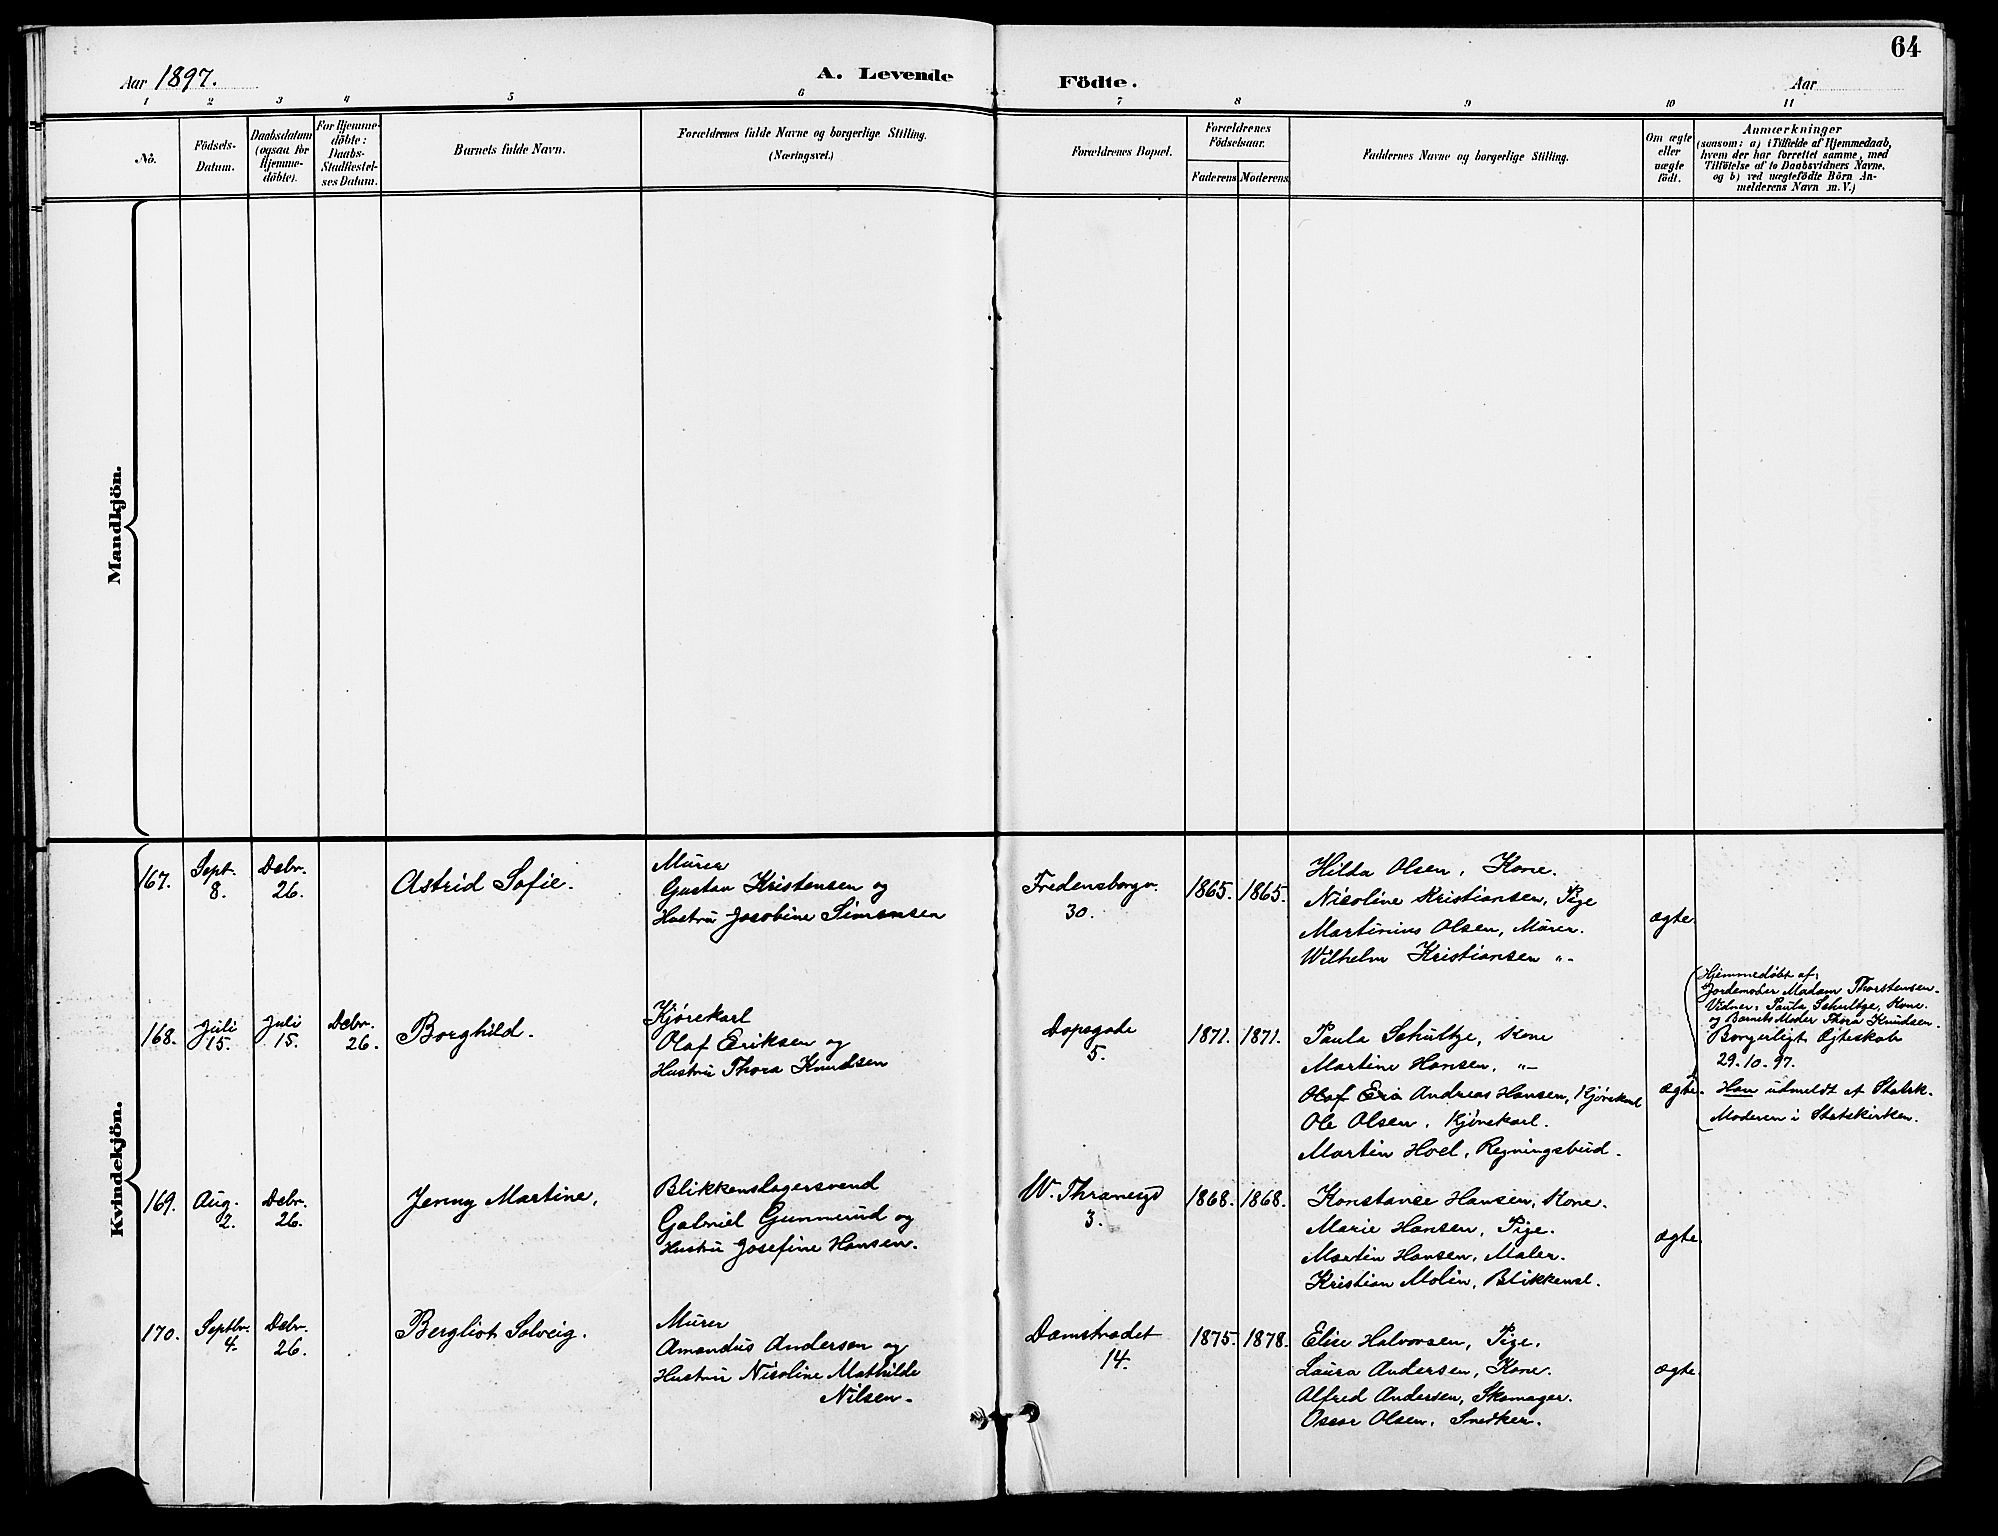 64
Aar 1897.
A. Levende Födte.
Aar
1 2 3 4 5 6 7 8 9 10 11
No.
Födsels-
Datum.
Daabsdatum
(ogsaa for
Hjemme-
döbte).
For Hjemme-
döbte:
Daabs-
Stadfæstel-
ses Datum.
Barnets fulde Navn.
Forældrenes fulde Navne og borgerlige Stilling.
(Næringsvei.)
Forældrenes Bopæl.
Forældrenes
Födselsaar.
Faderens Moderens.
Faddernes Navne og borgerlige Stilling.
Om ægte
eller
uægte
födt.
Anmærkninger
(saasom: a) i Tilfælde af Hjemmedaab,
hvem der har forrettet samme, med
Tilföielse af to Daabsvidners Navne.
og b) ved uægtefödte Börn An-
melderens Navn m. V.)
Mandkjön.
Kvindekjön.
167.
Sept.
8.
Debr.
26.
Astrid Sofie.
Murer
Gustav Kristensen og
Hustru Jacobine Simensen
Fredensborgv.
30.
1865. 1865.
Hilda Olsen, Kone.
Nicoline Kristiansen, Pige
Martinius Olsen, Murer.
Wilhelm Kristiansen "-
ægte.
168.
Juli
15.
Juli
15.
Debr.
26.
Borghild.
Kjørekarl
Olaf Eriksen og
Hustru Thora Knudsen
Dopsgade
5.
1871. 1871.
Paula Schultze, Kone
Martine Hansen, "-
Olaf Andreas Hansen, Kjørekarl
Ole Olsen, Kjørekarl.
Martin Hoel, Regningsbud.
ægte.
Hjemmedøbt af:
Jordemoder Madam Thorstensen.
Vidner: Paula Schultze, Kone.
og Barnets Moder Thora Knudsen.
Borgerligt Ægteskab
29.-10.-97.
Han udmeldt af Statsk.
Moderen i Statskirken.
169.
Aug.
2.
Debr.
26.
Jenny Martine.
Blikkenslagersvend
Gabriel Gunnerud og
Hustru Josefine Hansen.
W. Thranesgd
3.
1868. 1868.
Konstanse Hansen, Kone.
Marie Hansen, Pige.
Martin Hansen, Maler.
Kristian Molin, Blikkensl.
ægte.
170.
Septbr.
4.
Debr.
26.
Bergliot Solveig.
Murer
Amandus Andersen og
Hustru Nicoline Mathilde
Nilsen.
Damstrædet
14.
1875. 1878.
Elise Halvorsen, Pige.
Laura Andersen, Kone.
Alfred Andersen, Skomager.
Oscar Olsen, Snedker.
ægte.